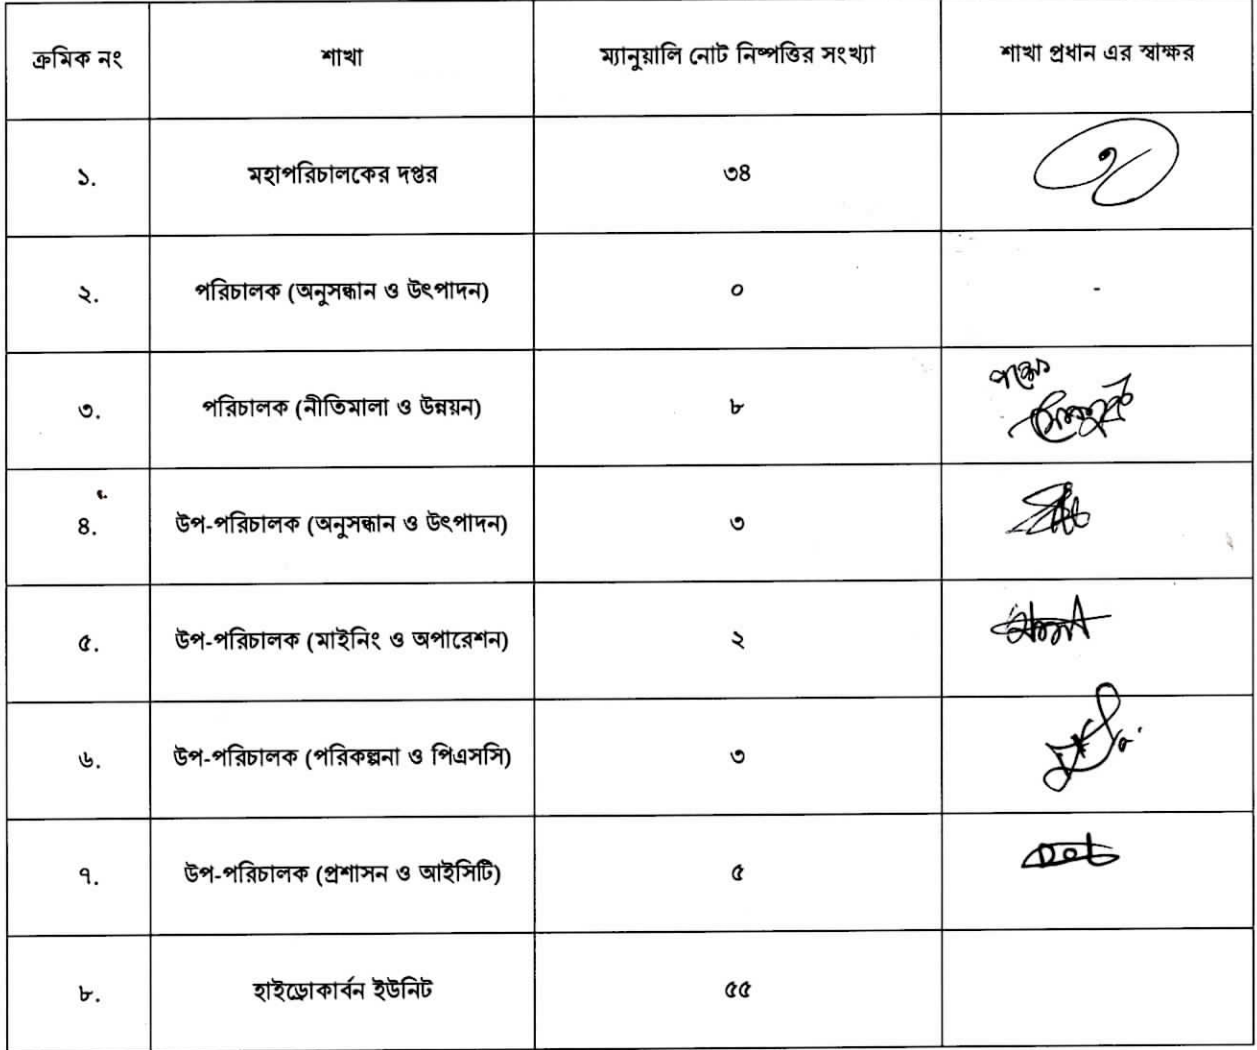 ক্রমিক নং শাখা ম্যানুয়ালি নোট নিষ্পত্তির সংখ্যা শাখা প্রধান এর স্বাক্ষর
১. মহাপরিচালকের দপ্তর ৩৪
২. পরিচালক (অনুসন্ধান ও উৎপাদন) ০ -
পক্ষে
৩. পরিচালক (নীতিমালা ও উন্নয়ন) ৮
৪. উপ-পরিচালক (অনুসন্ধান ও উৎপাদন) ৩
৫. উপ-পরিচালক (মাইনিং ও অপারেশন) ২
৬. উপ-পরিচালক (পরিকল্পনা ও পিএসসি) ৩
৭. উপ-পরিচালক (প্রশাসন ও আইসিটি) ৫
৮. হাইড্রোকার্বন ইউনিট ৫৫